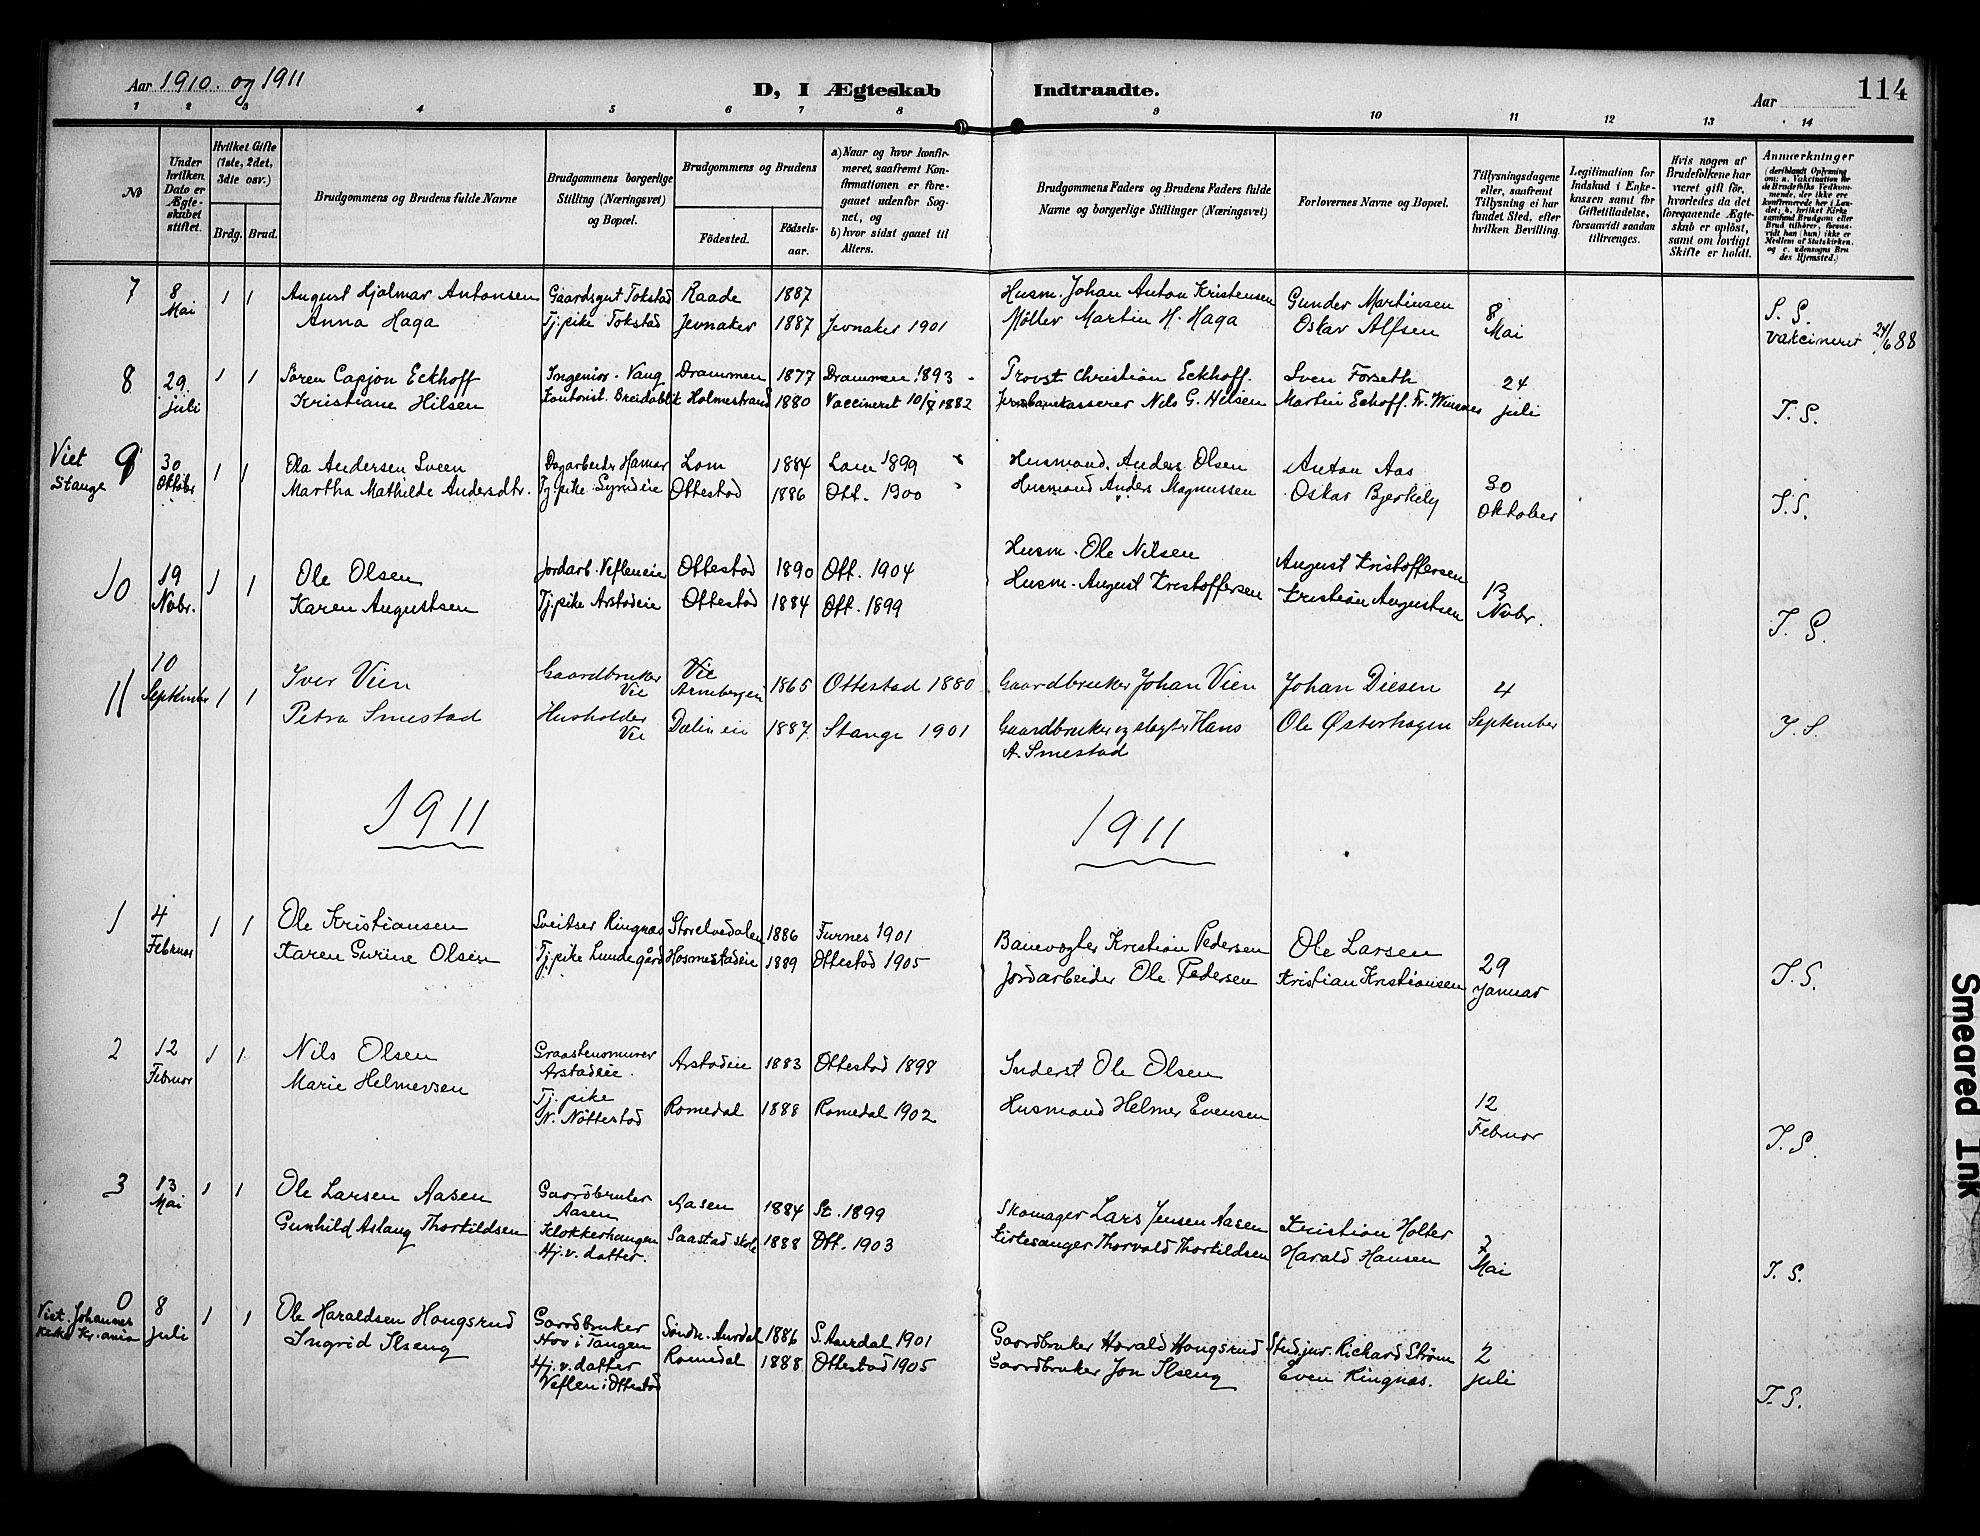 Aar 1910. og 1911
D, I Ægteskab Indtraadte.
Aar
114
1 2 3 4 5 6 7 8 9 10 11 12 13 14
No
Under hvilken Dato er Ægteskabet stiftet.
Hvilket Gifte (1ste, 2det, 3die osv.)
Brdg. Brud.
Brudgommens og Brudens fulde Navne
Brudgommens borgerlige Stilling (Næringsvei) og Bopæl.
Brudgommens og Brudens
Fødested.
Fødsels-aar.
a) Naar og hvor konfirmeret, saafremt Konfirmationen er foregaaet udenfor Sognet, og
b) hvor sidst gaaet til Alters.
Brudgommens Faders og Brudens Faders fulde Navne og borgerlige Stillinger (Næringsvei)
Forlovernes Navne og Bopæl.
Tillysningsdagene eller, saafremt Tillysning ei har fundet Sted, efter hvilken Bevilling.
Legitimation for Indskud i Enkekassen samt for Giftetilladelse, forsaavidt saadan tiltrænges.
Hvis nogen af Brudefolkene har været gift før, hvorledes da det foregaaende Ægteskab er opløst, samt om lovligt Skifte er holdt.
Anmærkninger (deriblandt Oplysning om: a. Vakcination for de Brudefolks Vedkommende, der ikke er konfirmerede her i Landet; b. hvilket Kirkesamfund Brudgom eller Brud tilhører, forsaavidt han (hun) ikke er Medlem af Statskirken, og c. udensogns Brudes Hjemsted.)
7 8 Mai 1 1 August Hjalmar Antonsen Gaardsgut Tokstad Raade 1887 Husm. Johan Anton Kristensen Gunder Martinsen 8 Mai
Anna Haga Tj.pike Tokstad Jevnaker 1887 Jevnaker 1901 Møller Martin H. Haga Oskar Alfsen
vakcineret 24/6 88
8 29. juli 1 1 Søren Capjon Eckhoff Ingeniør. Vang Drammen 1877 Drammen 1893 Provst Christian Eckhoff. Sven Forseth 24 juli
Kristiane Hilsen Kontorist. Breidablik Holmestrand 1880 Vaccineret 1882 Nils G. Hilsen Martin Eckhoff.
T. S.
Viet Stange 9 30 Oktobr. 1 1 Ola Andersen Sveen Dagarbeider Hamar Lom 1884 Lom 1899 Husmand. Anders Olsen Anton Aas 30 Oktober
Martha Mathilde Andersdtr. Tj.pike Ottestad 1886 Ott. 1900 Husmand Anders Magnussen Oskar Bjerkely
T. S.
10 19 Nvbr. 1 1 Ole Olsen Jordarb. Vefleneie Ottestad 1890 Ott. 1904 Husm. Ole Nilsen August Kristoffersen 13 Nvbr.
Karen Augustsen Tj.pike Arstadeie Ottestad 1884 Ott. 1899 Husm. August Kristoffersen Kristian Augustsen
T. S.
11 10 September 1 1 Iver Vien Gaardbruker Vie Vie 1865 Ottestad 1880 Gaardbruker Johan Vien Johan Diesen 4 September
Petra Smestad Husholder Vie 1887 Stange 1901 Gaardbruker og slagter Hans A. Smestad Ole Østerhagen
T. S.
1911 1911
1 4 Februar 1 1 Ole Kristiansen Sveitser Ringnæs Storelvedalen 1886 Furnes 1901 Banevogter Kristian Pedersen Ole Larsen 29 Januar
Karen Gurine Olsen Tj.pike Lundegård Hosmestadeie 1889 Ottestad 1905 Jordarbeider Ole Pedersen Kristian Kristiansen
T. S.
2 12 Februar 1 1 Nils Olsen Graastensmurer Arstadeie. Arstadeie 1883 Ottestad 1898 Inderst Ole Olsen
Marie Helmersen Tj.pike N. Nøttestad Romedal 1888 Romedal 1902 Husmand Helmer Evensen 12 Februar
T. S.
3 13 Mai 1 1 Ole Larsen Aasen Gaardbruker Aasen Aasen 1884 St. 1899 Skomager Lars Jensen Aasen Kristian Holter 7 Mai
Gunhild Aslaug Thorkildsen Klokkerhaugen Hj.v. datter. Saastad skole 1888 Ott. 1903 Kirkesanger Thorvald Thorkildsen Harald Hansen
T. S.
Viet. Johannes Kirke Kr.ania 0 8 juli 1 1 Ole Haraldsen Hougsrud Gaardbruker Hov i Tangen Søndr. Aurdal 1886 S. Aurdal 1901 Gaardbruker Harald Hougsrud Stud.jur. Rickard Strøm 2 juli
Ingrid Ilseng Hj.v. datter Veflen i Ottestad Romedal 1888 Ottestad 1905 Gaardbruker Jon Ilseng Even Ringnæs.
T. S.
Smeared Ink